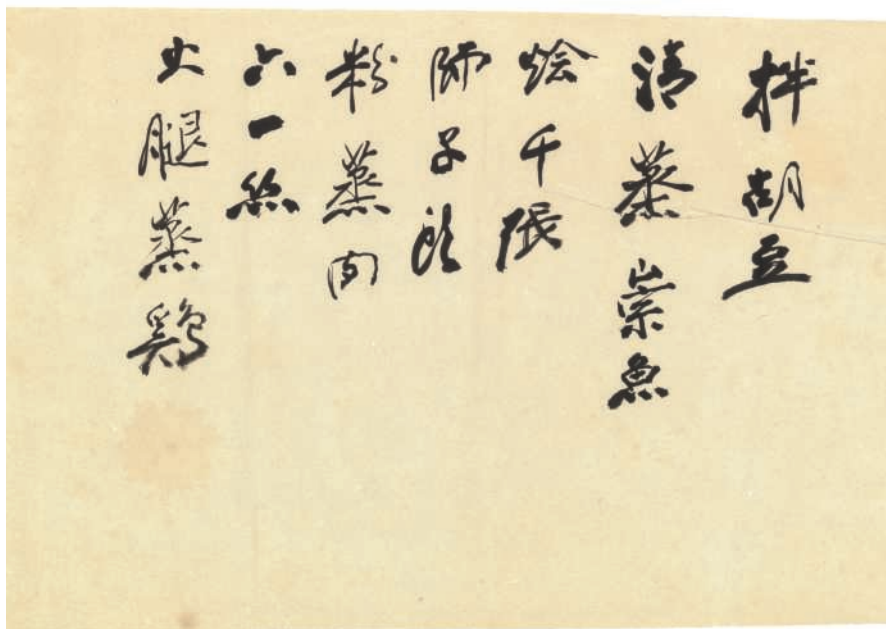 拌胡豆
清蒸崇魚
烩千張
師子頭
粉蒸肉
六一絲
火腿蒸鷄